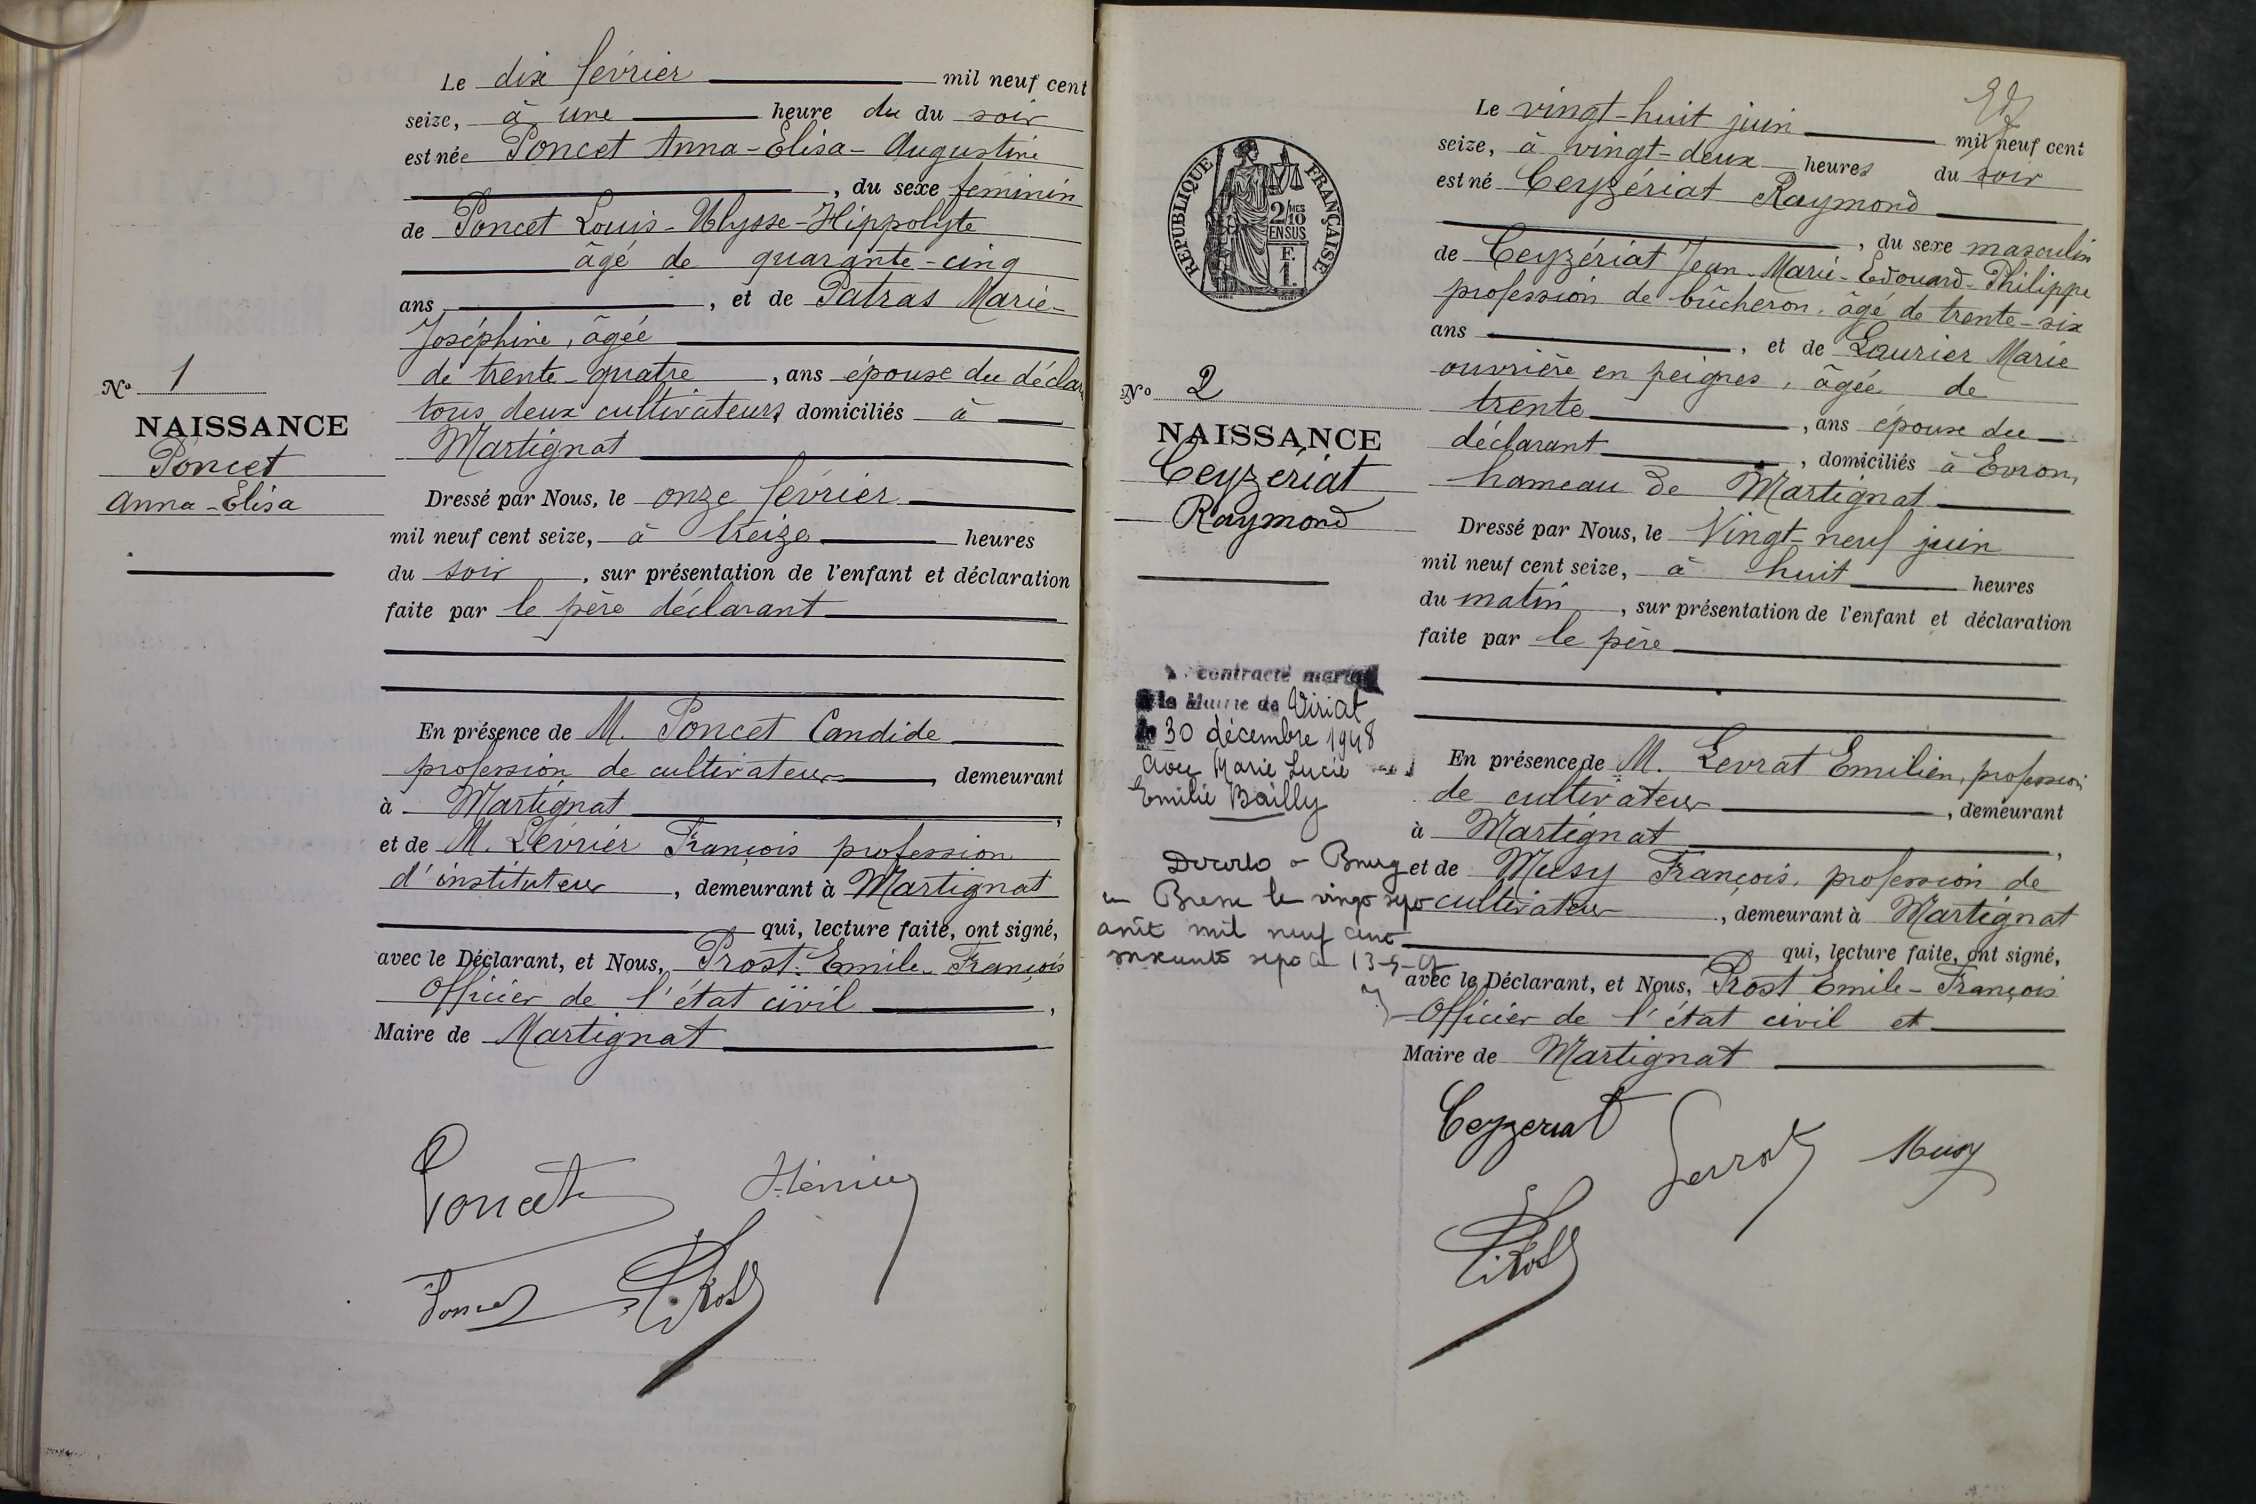 Le dix février mil neuf cent
seize, à une heure du du soir
est née Poncet Anna-Elisa-Augustine
, du sexe féminin
de Poncet Louis-Ulysse-Hippolyte
âgé de quarante-cinq
ans , et de Patras Marie-
Joséphine, âgée
de trente-quatre , ans épouse du déclar
tous deux cultivateurs domiciliés à
Martignat
No 1
NAISSANCE
Poncet
Anna-Elisa
Dressé par Nous, le onze février
mil neuf cent seize, à treize heures
du soir , sur présentation de l'enfant et déclaration
faite par le père déclarant
En présence de M. Poncet Candide
profession de cultivateur , demeurant
à Martignat ,
et de M. Lévrier François profession
d'instituteur , demeurant à Martignat
qui, lecture faite, ont signé,
avec le Déclarant, et Nous, Prost Emile-François
Officier de l'état civil ,
Maire de Martignat
Poncet
Poncet
Prost
Le vingt-huit juin mil neuf cent
seize, à vingt-deux heures du soir
est né Ceyzériat Raymond
, du sexe masculin
de Ceyzériat Jean-Marie-Edouard-Philippe
profession de bûcheron, âgé de trente-six
ans , et de Laurier Marie
ouvrière en peignes, âgée de
trente , ans épouse du
déclarant , domiciliés à Evron,
hameau de Martignat
RÉPUBLIQUE FRANÇAISE
2/10 MES
EN SUS
F.
1.
No 2
NAISSANCE
Ceyzériat
Raymond
Dressé par Nous, le Vingt-neuf juin
mil neuf cent seize, à huit heures
du matin , sur présentation de l'enfant et déclaration
faite par le père
contracté mariage
la Mairie de Viriat
le 30 décembre 1948
avec Marie Lucie
Emilie Bailly
Décédé à Bourg
en Bresse le vingt sept
août mil neuf cent
soixante sept
En présence de M. Levrat Emilien, profession
de cultivateur , demeurant
à Martignat ,
et de Musy François, profession de
cultivateur , demeurant à Martignat
qui, lecture faite, ont signé,
avec le Déclarant, et Nous, Prost Emile-François
Officier de l'état civil et
Maire de Martignat
Ceyzeriat
Levrat
Musy
Prost